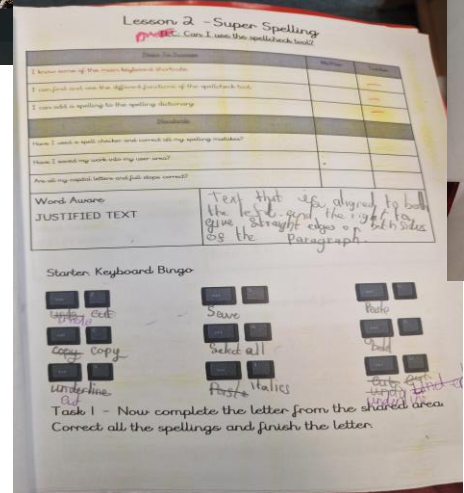 Lesson 2 - Super Spelling
Can I use the spellcheck tool?
Steps To Success
I know some of the main keyboard shortcuts.
I can find and use the different functions of the spellcheck tool.
I can add a spelling to the spelling dictionary.
Standards
Have I used a spell checker and correct all my spelling mistakes?
Have I saved my work into my user area?
Are all my capital letters and full stops correct?
Word Aware
JUSTIFIED TEXT
Text that is aligned to both
the left and the right to
give straight edges on both sides
of the Paragraph.
Starter: Keyboard Bingo
cut Save
copy copy Select all Bold
underline Paste italics
Cut underline
Task 1 - Now complete the letter from the shared area.
Correct all the spellings and finish the letter.